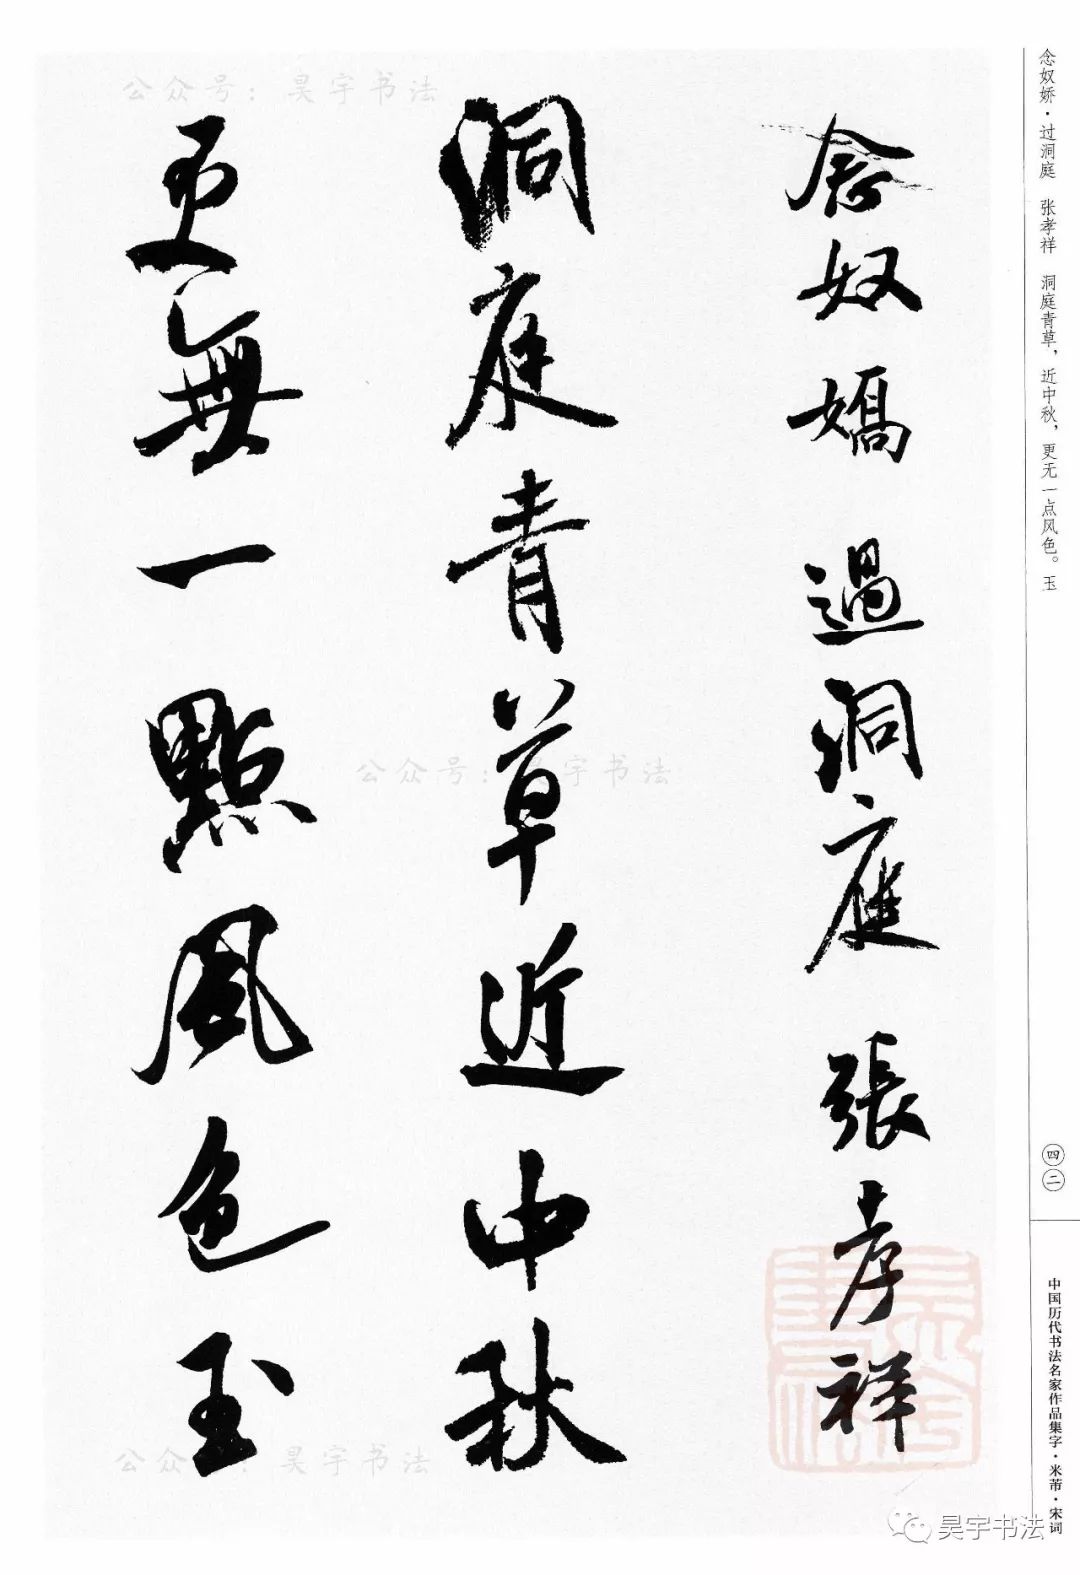 念奴娇·过洞庭 张孝祥 洞庭青草，近中秋，更无一点风色。玉
四二
中国历代书法名家作品集字·米芾·宋词
念奴嬌 過洞庭 張孝祥
洞庭青草近中秋
更無一點風色玉
公众号：昊宇书法
公众号：昊宇书法
公众号：昊宇书法
昊宇书法